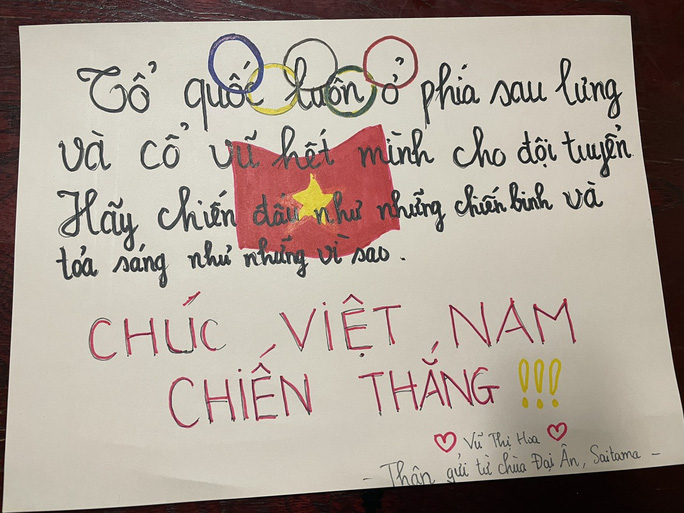 Tổ quốc luôn ở phía sau lưng
và cổ vũ hết mình cho đội tuyển
Hãy chiến đấu như những chiến binh và
toả sáng như những vì sao.
CHÚC VIỆT NAM
CHIẾN THẮNG !!!
Vũ Thị Hoa
- Thân gửi từ chùa Đại Ân, Saitama -